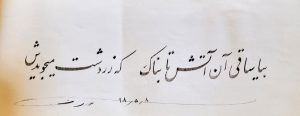 بیا ساقی آن آتش تابناک که زردشت میجویدش